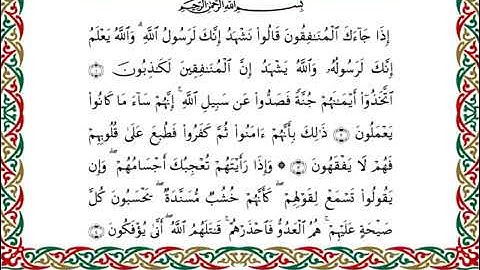 بِسْمِ اللَّهِ الرَّحْمَٰنِ الرَّحِيمِ
إِذَا جَآءَكَ ٱلْمُنَٰفِقُونَ قَالُوا۟ نَشْهَدُ إِنَّكَ لَرَسُولُ ٱللَّهِ ۗ وَٱللَّهُ يَعْلَمُ
إِنَّكَ لَرَسُولُهُۥ وَٱللَّهُ يَشْهَدُ إِنَّ ٱلْمُنَٰفِقِينَ لَكَٰذِبُونَ ۝١
ٱتَّخَذُوٓا۟ أَيْمَٰنَهُمْ جُنَّةً فَصَدُّوا۟ عَن سَبِيلِ ٱللَّهِ ۚ إِنَّهُمْ سَآءَ مَا كَانُوا۟
يَعْمَلُونَ ۝٢ ذَٰلِكَ بِأَنَّهُمْ ءَامَنُوا۟ ثُمَّ كَفَرُوا۟ فَطُبِعَ عَلَىٰ قُلُوبِهِمْ
فَهُمْ لَا يَفْقَهُونَ ۝٣ ۞ وَإِذَا رَأَيْتَهُمْ تُعْجِبُكَ أَجْسَامُهُمْ ۖ وَإِن
يَقُولُوا۟ تَسْمَعْ لِقَوْلِهِمْ ۖ كَأَنَّهُمْ خُشُبٌ مُّسَنَّدَةٌ ۖ يَحْسَبُونَ كُلَّ
صَيْحَةٍ عَلَيْهِمْ ۚ هُمُ ٱلْعَدُوُّ فَٱحْذَرْهُمْ ۚ قَٰتَلَهُمُ ٱللَّهُ ۖ أَنَّىٰ يُؤْفَكُونَ ۝٤